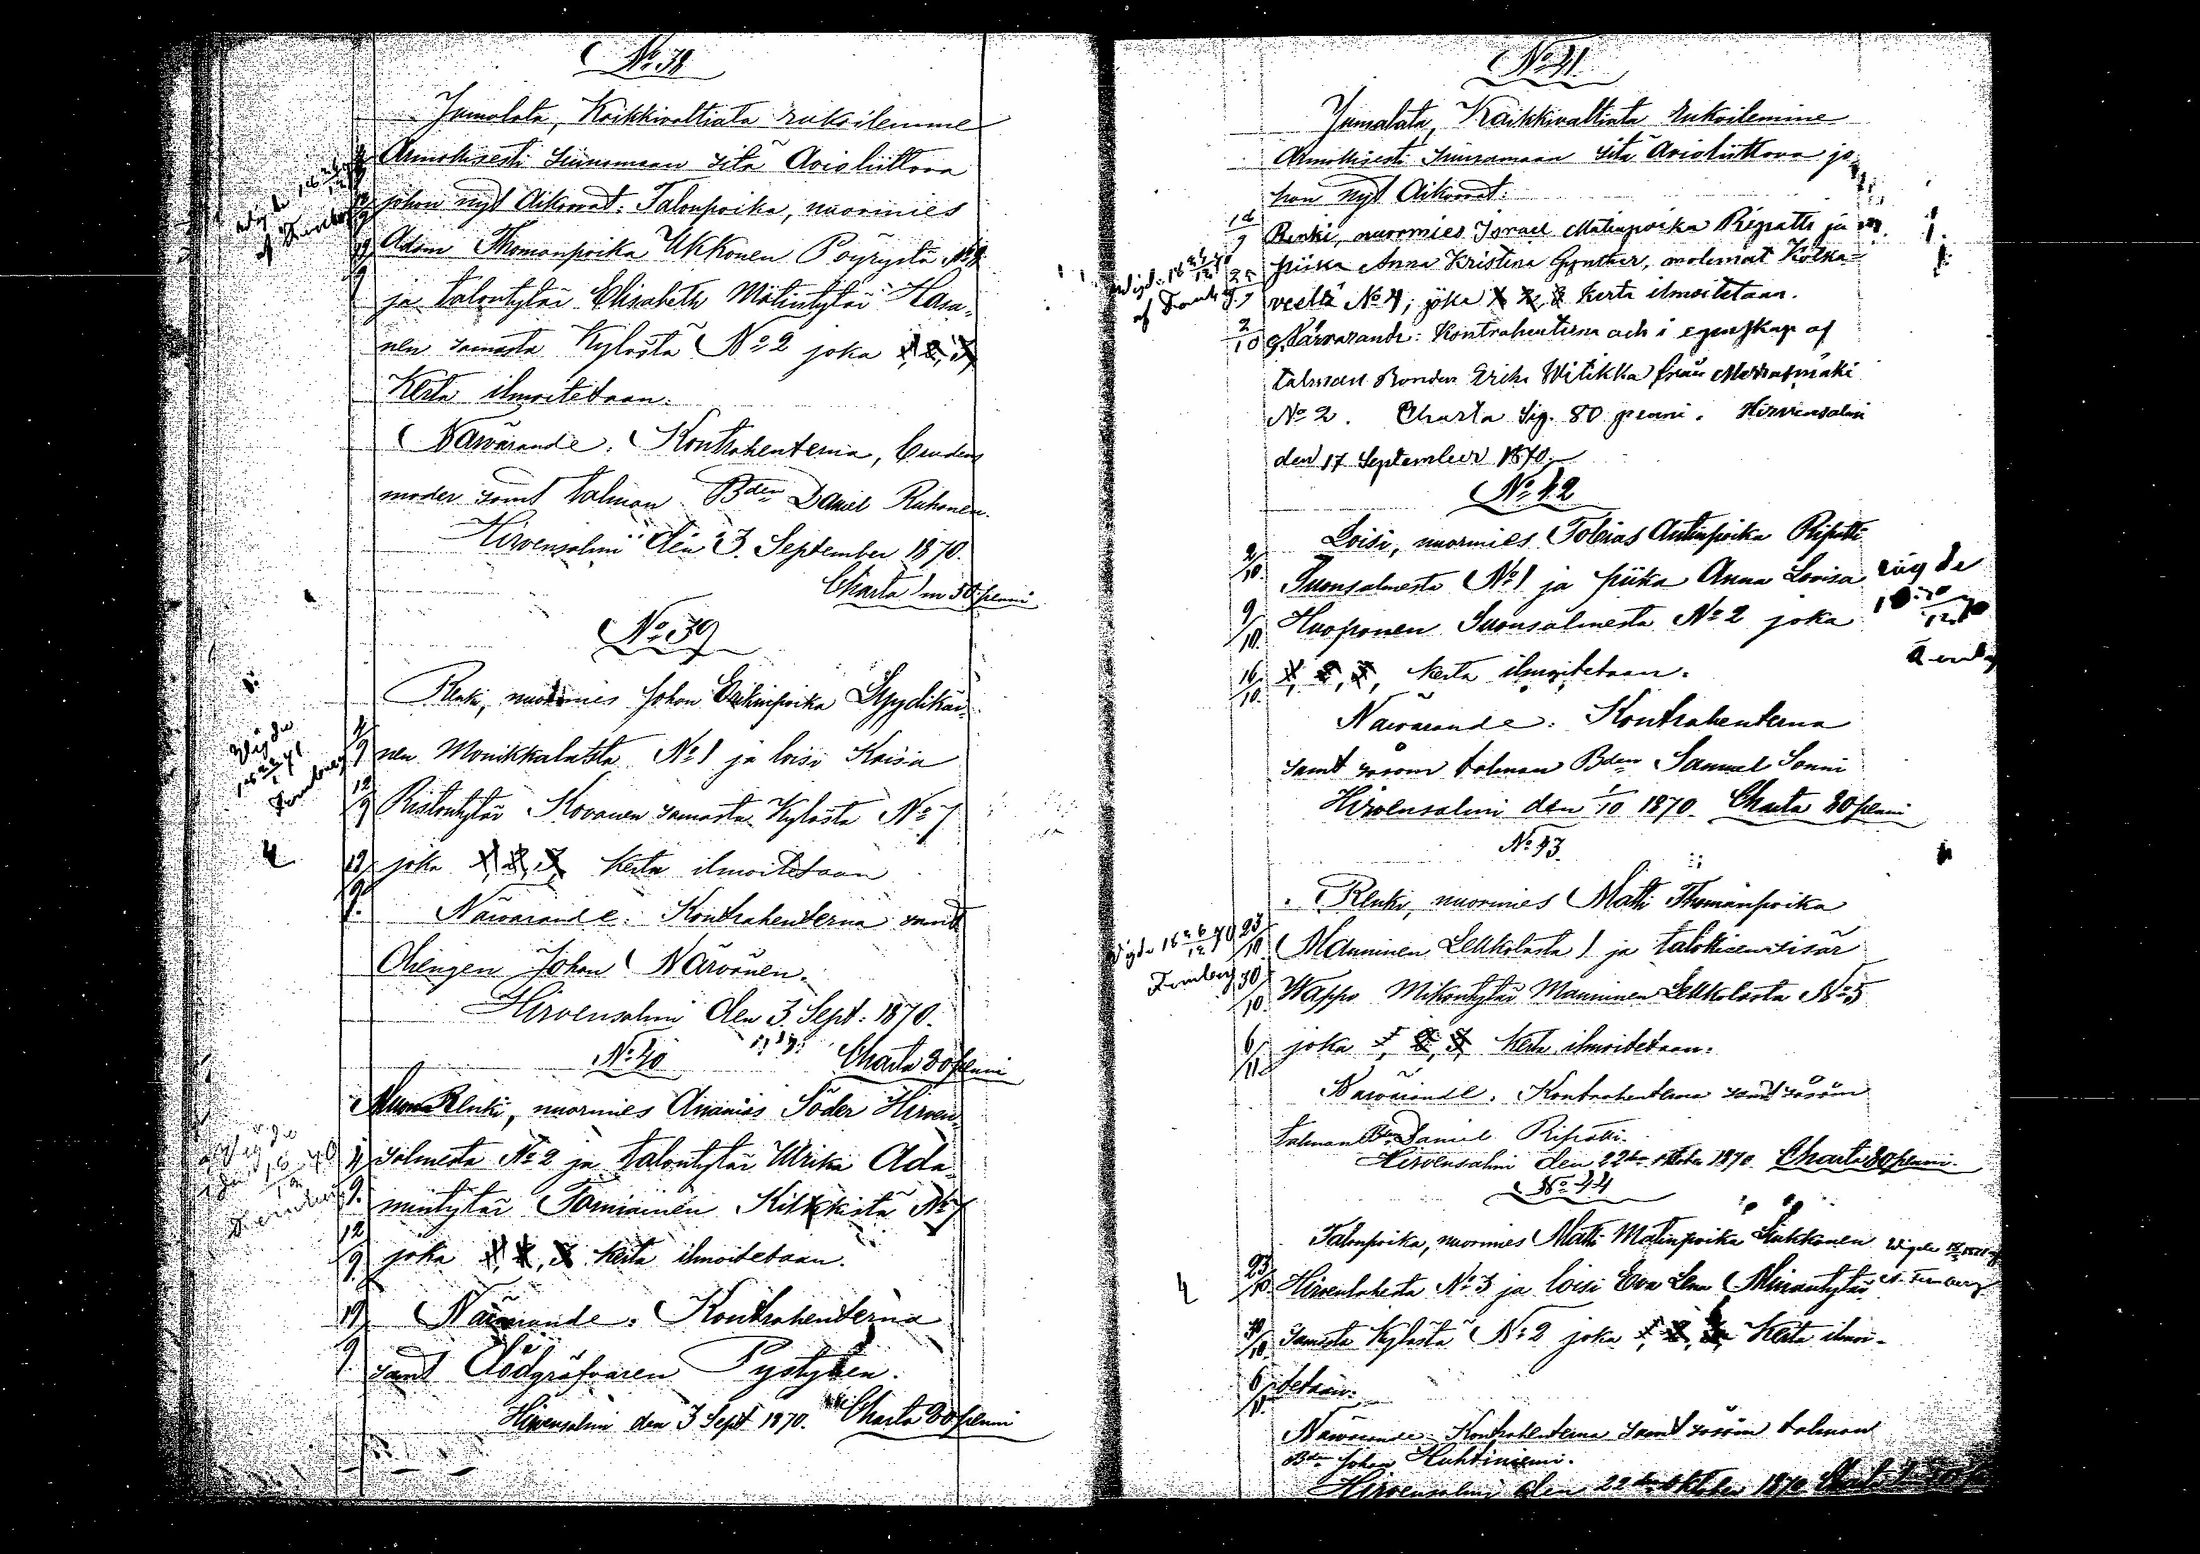 No 38
Jumalata, Kaikkivaltiata rukoilemme
Armollisesti siunomaan sitä Avioliittova
johon nyt Aikovat: Talonpoika, nuormies
Adam Thomanpoika Ukkonen Pöyrystä No
ja talontytär Elisabeth Matintytär Hasa-
nen samasta Kylästä No 2 joka 1, 2, 3,
Kerta ilmoitetaan.
Närvarande: Kontrahenterna, brudens
moder samt talman Bden Daniel Ruhonen.
Hirvensalmi den 3 September 1870.
Charta 1 m 50 penni
No 39
Renki, nuormies Johan Erikinpoika Lyydikäi-
nen Monikkalasta No 1 ja loisi Kaisa
Ristontytär Kovanen samasta Kylästä No 7
joka 1, 2, 3, Kerta ilmoitetaan
Närvarande: Kontrahenterna samt
Drengen Johan Närvänen.
Hirvensalmi den 3 Sept: 1870.
No 40
Charta 80 penni
Renki, nuormies Ananias Söder Hirven-
salmesta No 2 ja talontytär Ulrika Ada-
mintytär Torniainen Kitkkistä No 7
joka 1, 2, 3 Kerta ilmoitetaan.
Närvarande: Kontrahenterna
samt Dödgräfvaren Pystynen.
Hirvensalmi den 3 Sept 1870. Charta 80 penni
No 41.
Jumalata, Kaikkivaltiata Rukoilemme
Armollisesti siunaamaan sitä Avioliittova jo-
hon nyt Aikovat:
Renki, nuormies Israel Matinpoika Ripatti ja
piika Anna Kristina Gynther, molemat Kotka-
veeltä No 4, joka 1, 2, 3 Kerta ilmoitetaan.
Närvarande: Kontrahenterna och i egenskap af
talman Bonden Erik Witikka från Merrasmäki
No 2. Charta Sig. 80 penni. Hirvensalmi
den 17 September 1870.
No 42
Loisi, nuormies Tobias Antinpoika Ripatti
Suonsalmesta No 1 ja piika Anna Lovisa
Huoponen Suonsalmesta No 2 joka
1, 2, 3, Kerta ilmoitetaan.
Närvarande: Kontrahenterna
samt såsom talman Bden Samuel Sonni
Hirvensalmi den 1/10 1870. Charta 80 penni
No 43.
Renki, nuormies Matti Thomanpoika
Manninen Lelkkolasta 1 ja talokkaan sisar
Wappo Mikontytär Manninen Lelkkolasta No 5
joka 1, 2, 3, Kerta ilmoitetaan:
Närvarande: Kontrahenterna samt såsom
talman Bden Daniel Ripatti.
Hirvensalmi den 22dra oktober 1870. Charta 80 penni.
No 44
Talonpoika, nuormies Matti Matinpoika Liukkonen
Hirvenlahesta No 3 ja loisi Eva Lena
Samasta Kylästä No 2 joka 1, 2, 3, Kerta ilmoi-
tetaan.
Närvarande: Kontrahenterna samt såsom talman
Bden Johan Huhtiniemi.
Hirvensalmi den 22dra oktober 1870